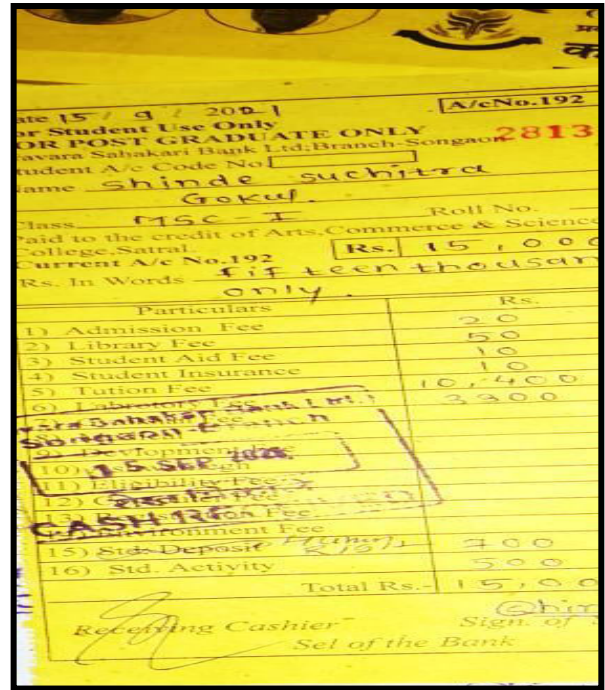 ate 15 / 9 / 2021
A/cNo.192
or Student Use Only
OR POST GRADUATE ONLY
2813
avara Sahakari Bank Ltd;Branch-Songaon
tudent A/c Code No.
ame Shinde suchitra
Gokul.
Class MSC - I Roll No.
Paid to the credit of Arts,Commerce & Science
College,Satral.
Current A/c No.192 Rs. 15,000
Rs. In Words fifteen thousan
only.
Particulars Rs.
1) Admission Fee 20
2) Library Fee 50
3) Student Aid Fee 10
4) Student Insurance 10
5) Tution Fee 10,400
6) 3900
15 SEP
10)
11) Eligibility Fee
12)
CASH
15) Std. Deposit 700
16) Std. Activity 500
Total Rs.- 15,00
Receiving Cashier Sign. of
Sel of the Bank